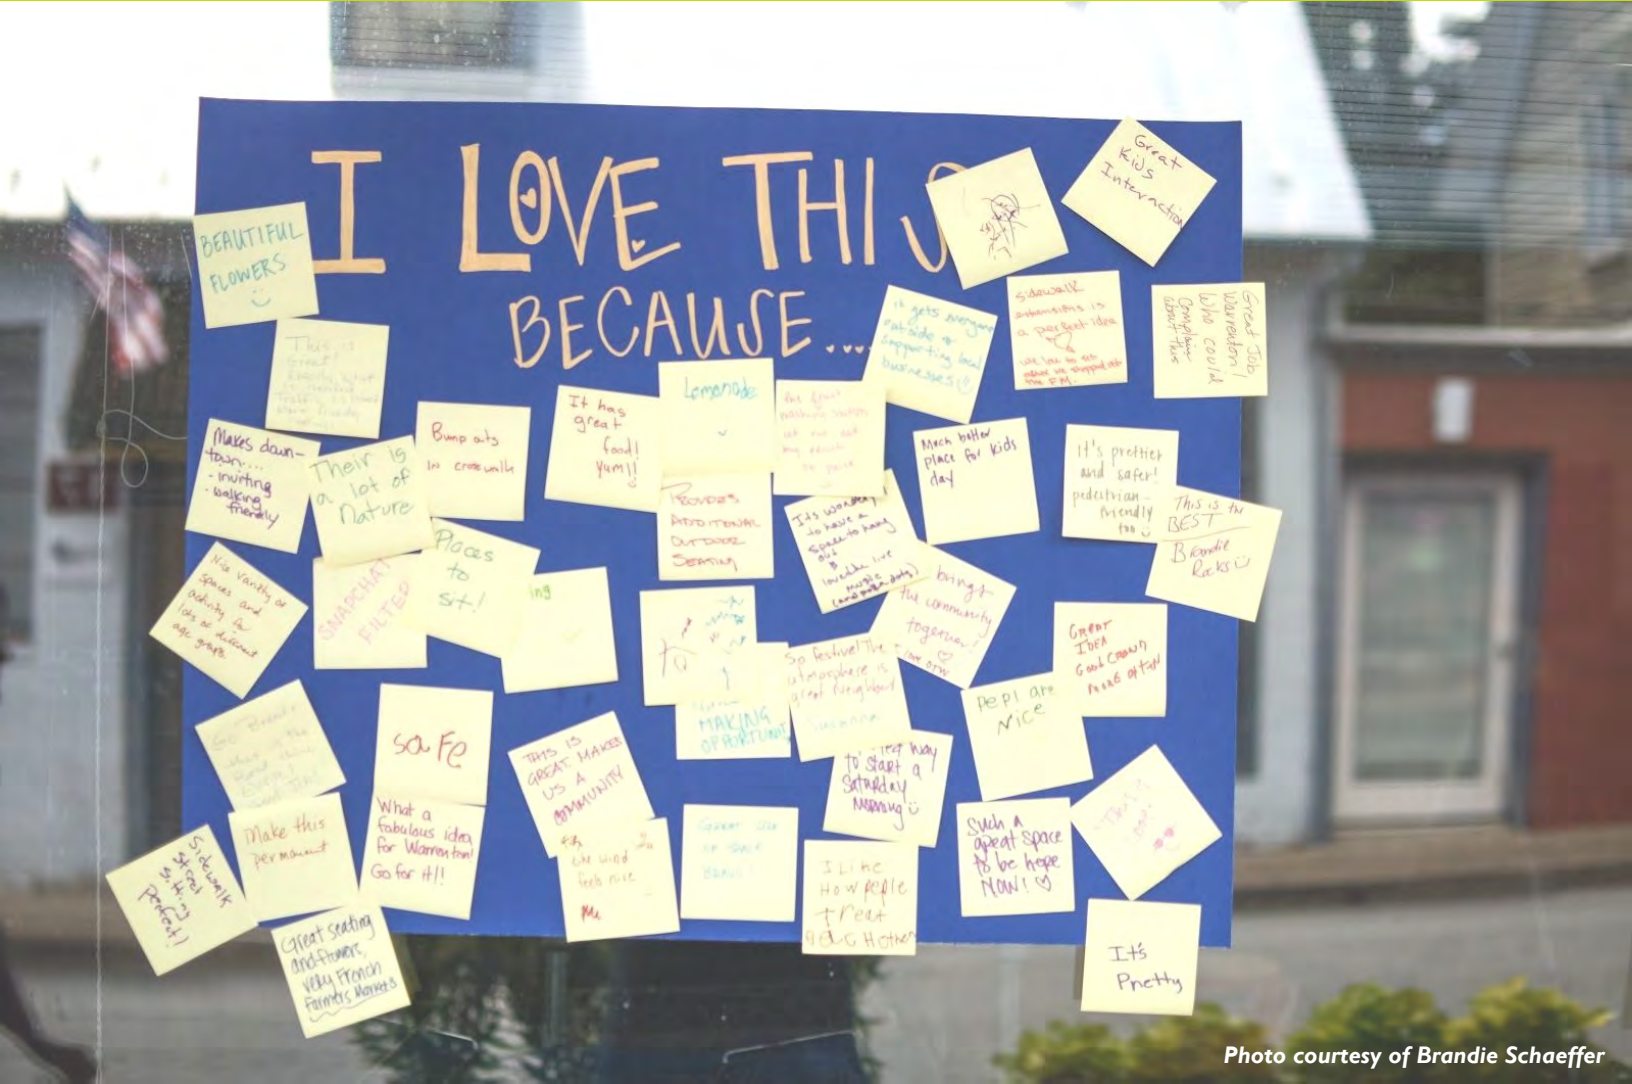 I LOVE THIS
BECAUSE....
Great
Kids
Interaction
BEAUTIFUL
FLOWERS
This is
Great!
it gets everyone
outside &
supporting local
businesses!!
sidewalk
extensions is
a perfect idea
we love to sit
after we shopped at
the F.M.
Great Job,
Warrenton!
Who could
complain
about this
Makes down-
town....
- inviting
- walking
friendly
Their is
a lot of
Nature
Bump outs
in crosswalk
It has
great
food!
Yum!!
Lemonade
Much better
place for kids
day
It's prettier
and safer!
pedestrian-
friendly
too
This is the
BEST
Brandie
Rocks
Provides
Additional
Outdoor
Seating
Its wonderful
to have a
space to hang
out
&
love the live
music
Nice variety of
spaces and
activity for
lots of different
age groups
SNAPCHAT
FILTER
Places
to
sit!
ing
brings
the community
together!
I love OTW
So festive! The
atmosphere is
great Neighbor
Suzanna
GREAT
IDEA
GOOD CROWD
MORE OFTEN
pepl are
Nice
MAKING
OPPORTUNIT
safe
THIS IS
GREAT MAKES
US A
COMMUNITY
way
to start a
Saturday
Morning
Make this
permanent
What a
fabulous idea
for Warrenton!
Go for it!!
the wind
feels nice
Me
I Like
How peple
treat
eacH other
Such a
great space
to be hope
NOW!
Sidewalk
street
sitting
perfect!
Great seating
and flowers,
very French
Farmers Markets
It's
Pretty
Photo courtesy of Brandie Schaeffer